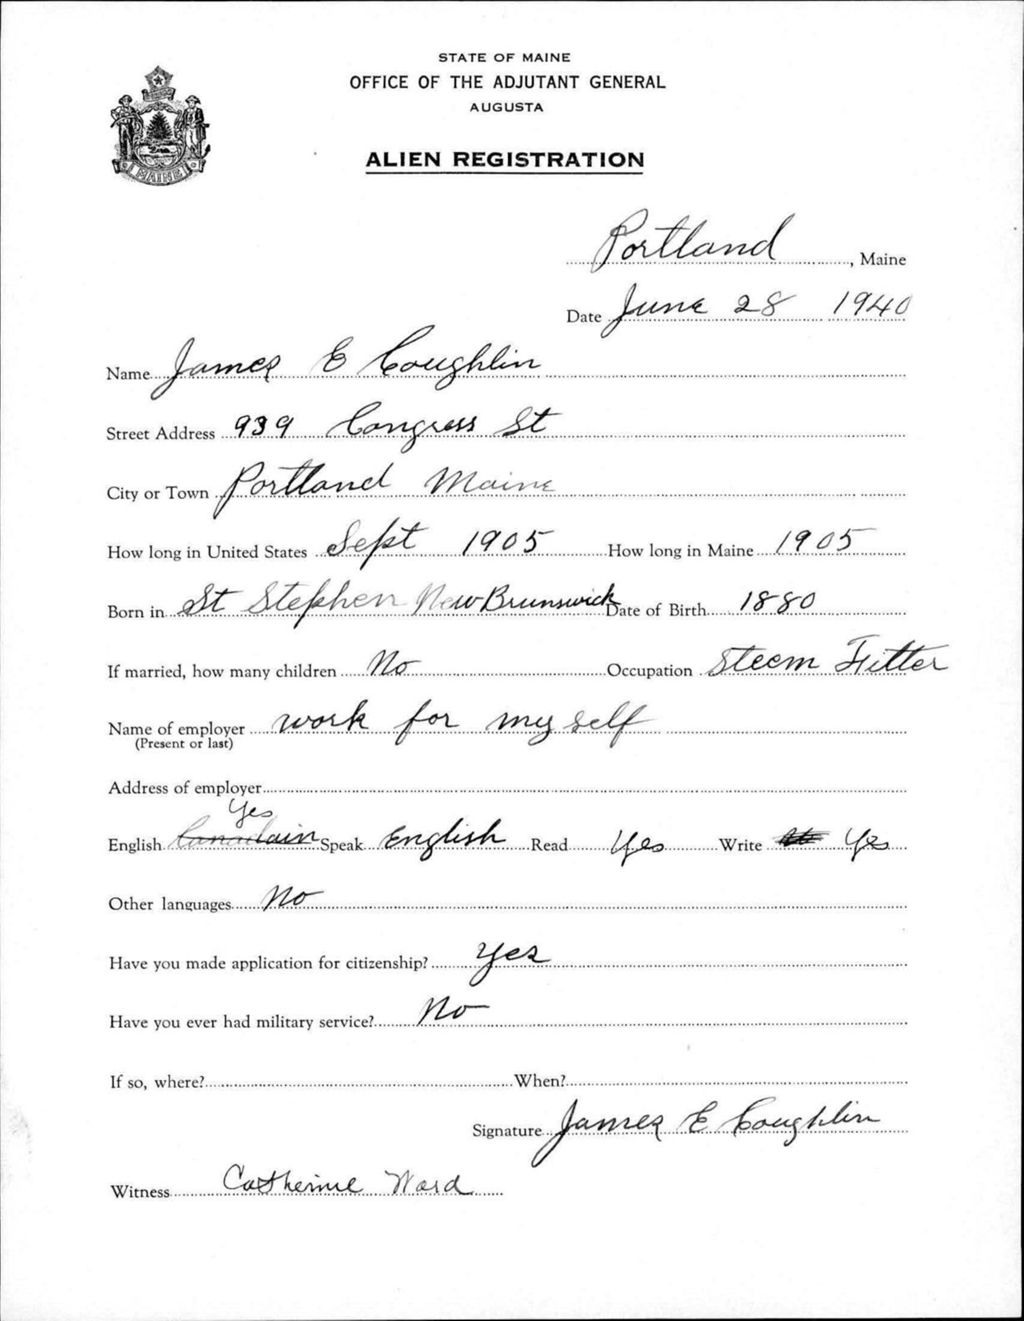 STATE OF MAINE
OFFICE OF THE ADJUTANT GENERAL
AUGUSTA
ALIEN REGISTRATION
Portland, Maine
Date June 28 1940
Name James E Coughlin
Street Address 939 Congress St
City or Town Portland Maine
How long in United States Sept 1905 How long in Maine 1905
Born in St Stephen New Brunswick Date of Birth 1880
If married, how many children No Occupation Steem Fitter
Name of employer work for my self
(Present or last)
Address of employer
Yes
English Canadain Speak English Read Yes Write Yes
Other languages No
Have you made application for citizenship? Yes
Have you ever had military service? No
If so, where? When?
Signature James E Coughlin
Witness Catherine Ward
MAINE